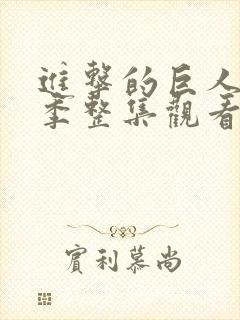 進擊的巨人
季整集觀看
實利慕尚